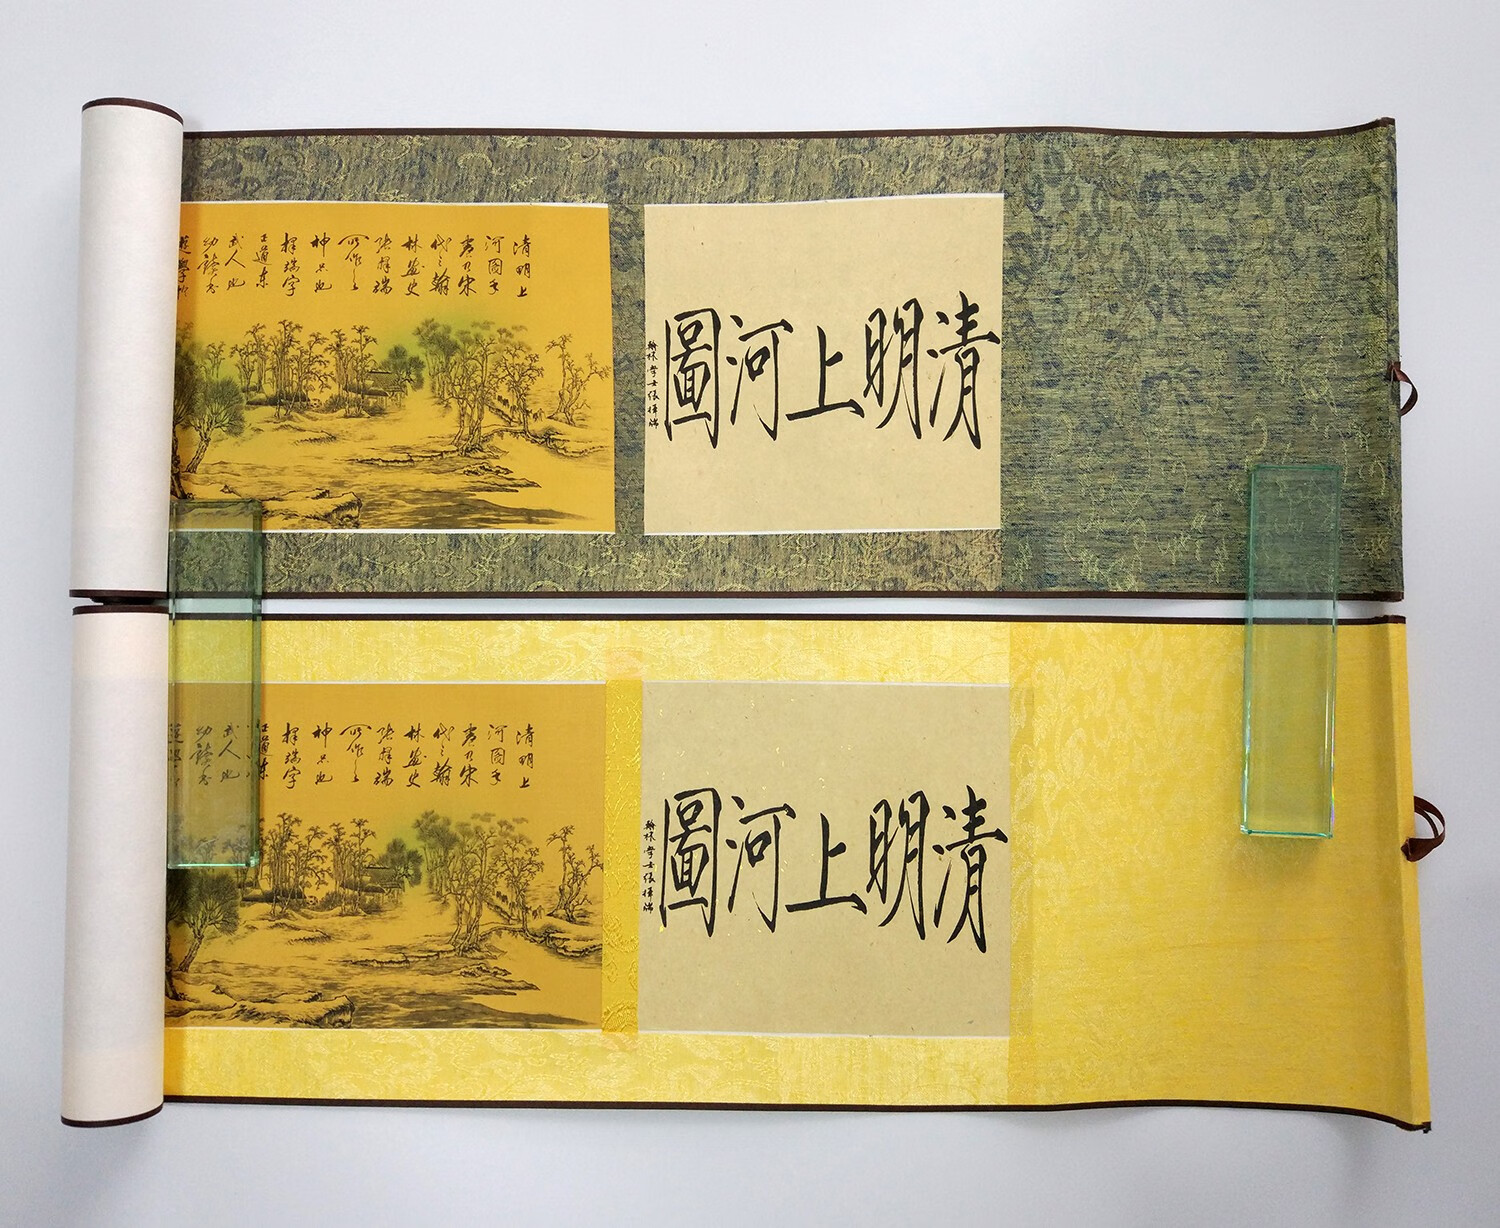 清明上河圖
翰林學士張擇端
清明上
河圖乃
南宋
代翰
林畫史
張擇端
所作
神品也
擇端字
正道東
武人也
幼讀書
清明上河圖
翰林學士張擇端
清明上
河圖
代翰
林畫史
張擇端
所作
神品也
擇端字
正道東
武人也
幼讀書